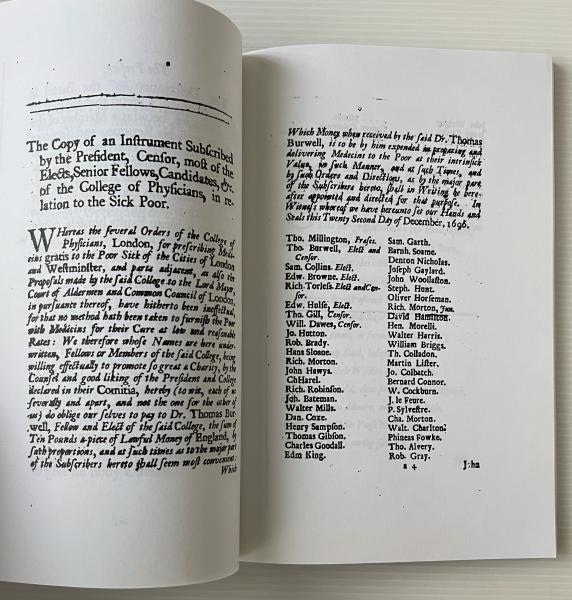 The Copy of an Instrument Subscribed
by the President, Censor, most of the
Elects, Senior Fellows, Candidates, &c.
of the College of Physicians, in re-
lation to the Sick Poor.
WHereas the several Orders of the College of
Physicians, London, for prescribing Medi-
cins gratis to the Poor Sick of the Cities of London
and Westminster, and parts adjacent, as also the
Proposals made by the said College to the Lord Mayor,
Court of Aldermen and Common Council of London,
in pursuance thereof, have hitherto been ineffectual,
for that no method hath been taken to furnish the Poor
with Medicins for their Cure at low and reasonable
Rates: We therefore whose Names are here under-
written, Fellows or Members of the said College, being
willing effectually to promote so great a Charity, by the
Counsel and good liking of the President and College
declared in their Comitia, hereby (to wit, each of us
severally and apart, and not the one for the other of
us) do oblige our selves to pay to Dr. Thomas Bur-
well, Fellow and Elect of the said College, the sum of
Ten Pounds a-piece of Lawful Money of England, by
such proportions, and at such times as to the major part
of the Subscribers hereto shall seem most convenient:
Which
Which Money when received by the said Dr. Thomas
Burwell, is to be by him expended in preparing and
delivering Medecins to the Poor at their intrinsick
Value, in such Manner, and at such Times, and
by such Orders and Directions, as by the major part
of the Subscribers hereto, shall in Writing be here-
after appointed and directed for that purpose. In
Witness whereof we have hereunto set our Hands and
Seals this Twenty Second Day of December, 1696.
Tho. Millington, Præses.
Tho. Burwell, Elect and
Censor.
Sam. Collins. Elect.
Edw. Browne. Elect.
Rich. Torless. Elect and Cen-
sor.
Edw. Hulse, Elect.
Tho. Gill, Censor.
Will. Dawes, Censor.
Jo. Hutton.
Rob. Brady.
Hans Sloane.
Rich. Morton.
John Hawys.
Ch. Harel.
Rich. Robinson.
Joh. Bateman.
Walter Mills.
Dan. Coxe.
Henry Sampson.
Thomas Gibson.
Charles Goodall.
Edm King.
Sam. Garth.
Barnh. Soame.
Denton Nicholas.
Joseph Gaylard.
John Woollaston.
Steph. Hunt.
Oliver Horseman.
Rich. Morton, Jun.
David Hamilton.
Hen. Morelli.
Walter Harris.
William Briggs.
Th. Colladon.
Martin Lister.
Jo. Colbatch.
Bernard Connor.
W. Cockburn.
J. le Feure.
P. Sylvestre.
Cha. Morton.
Walt. Charlton.
Phineas Fowke.
Tho. Alvery.
Rob. Gray.
a 4 John